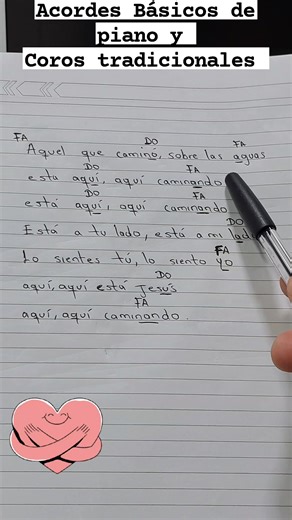 Acordes Básicos de
piano y
Coros tradicionales
FA DO FA
Aquel que caminó, sobre las aguas
DO FA
esta aquí, aquí caminando
DO FA
está aquí, aquí caminando
DO
Está a tu lado, está a mi lad
FA
Lo sientes tú, lo siento yo
DO
aquí, aquí está Jesús
FA
aquí, aquí caminando.